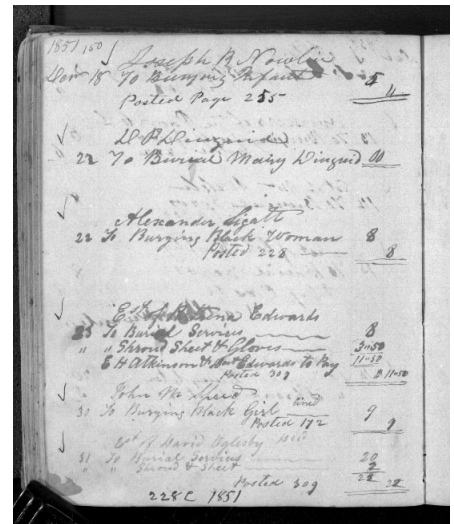 1851 150
Joseph R Nowlin
Dec 18 To Burying Infant 5
Posted Page 255
22 To Burial Mary 00
Alexander
22 To Burying Black Woman 8
Posted 228 8
Est of Edwards
25 To Burial Services 8
" " Shroud Sheet & Gloves 3=50
E H Atkinson & Edwards to Pay 11=50
Posted 309 11=50
John M Speed
30 To Burying Black Girl 9
Posted 172 9
Est of David Oglesby
31 To Burial Services 20
" " Shroud & Sheet 2
22
Posted 309 22
228 C 1851